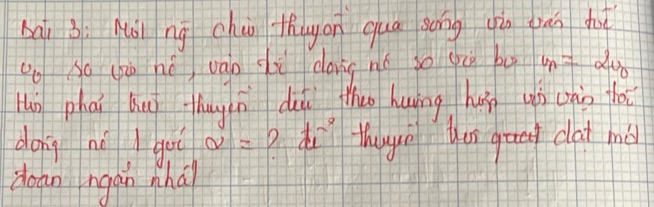 Bài 3: Một ng chèo thuyền qua sông với vận tốc
v₀ so với nc, vận tốc dòng nc so với bờ vn = 2v₀
Hỏi phải thuyền đi theo hướng hợp với vận tốc
dòng nc 1 góc α = ? để thuyền đạt một
đoạn ngắn nhất